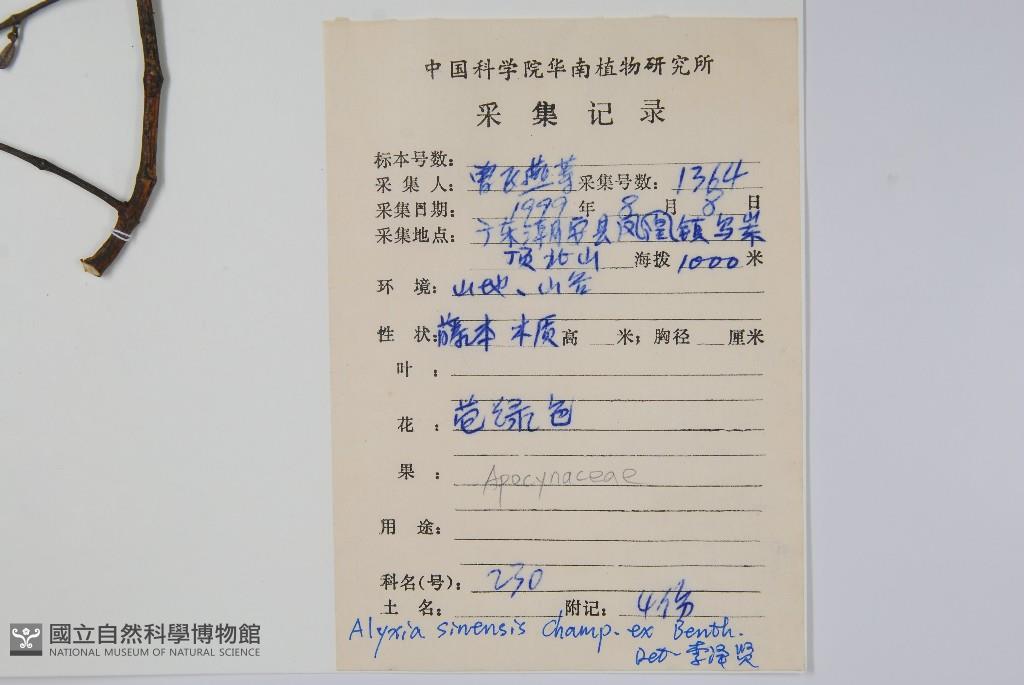 中国科学院华南植物研究所
采集记录
标本号数:
采集人: 曾飞燕等 采集号数: 1364
采集日期: 1999 年 8 月 8 日
采集地点: 广东潮安县凤凰镇乌岽
顶北山 海拨 1000 米
环境: 山地、山谷
性状: 藤本 木质 高 米; 胸径 厘米
叶:
花: 苞绿色
果: Apocynaceae
用途:
科名(号): 230
土名: 附记: 4份
Alyxia sinensis Champ. ex Benth.
Det. 李泽贤
國立自然科學博物館
NATIONAL MUSEUM OF NATURAL SCIENCE